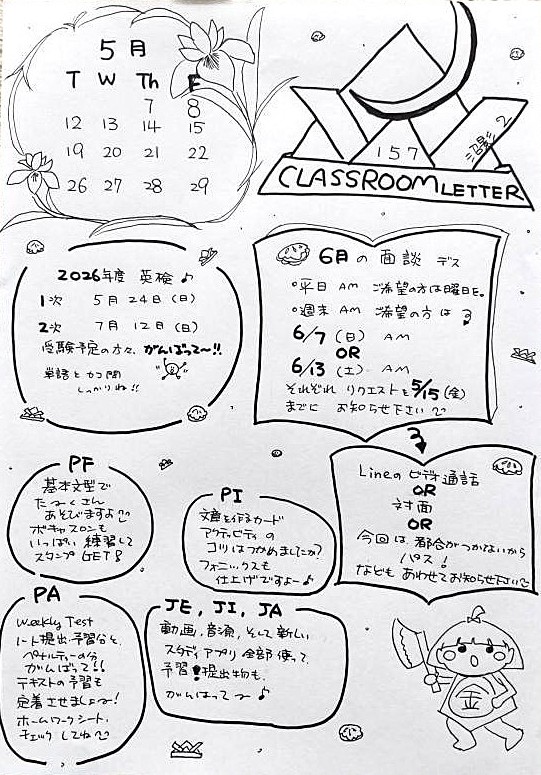 5月
T W Th F
7 8
12 13 14 15
19 20 21 22
26 27 28 29
157
CLASSROOM LETTER
2026年度 英検♪
1次 5月24日(日)
2次 7月12日(日)
受験予定の方々、がんばって〜!!
単語と カコ問
しっかりね!!
6月の面談 デス
○平日 AM ご希望の方は曜日を。
○週末 AM ご希望の方は
6/7(日) AM
OR
6/13(土) AM
それぞれ リクエストを 5/15(金)
までに お知らせ下さい
Lineのビデオ通話
OR
対面
OR
今回は、都合がつかないから
パス!
なども あわせてお知らせ下さい
PF
基本文型で
た〜くさん
あそびますよ
ボキャスロンも
いっぱい 練習して
スタンプ GET!
PI
文章を作るカード
アクティビティの
コツはつかめましたか?
フォニックスも
仕上げですよー♪
PA
Weekly Test
ノート提出・予習分と、
ペナルティーの分
がんばって!!
テキストの予習も
定着させましょ〜!
ホームワークシート、
チェックしてね
JE, JI, JA
動画、音源、そして新しい
スタディアプリ 全部使って、
予習!提出物も、
がんばって〜♪
金